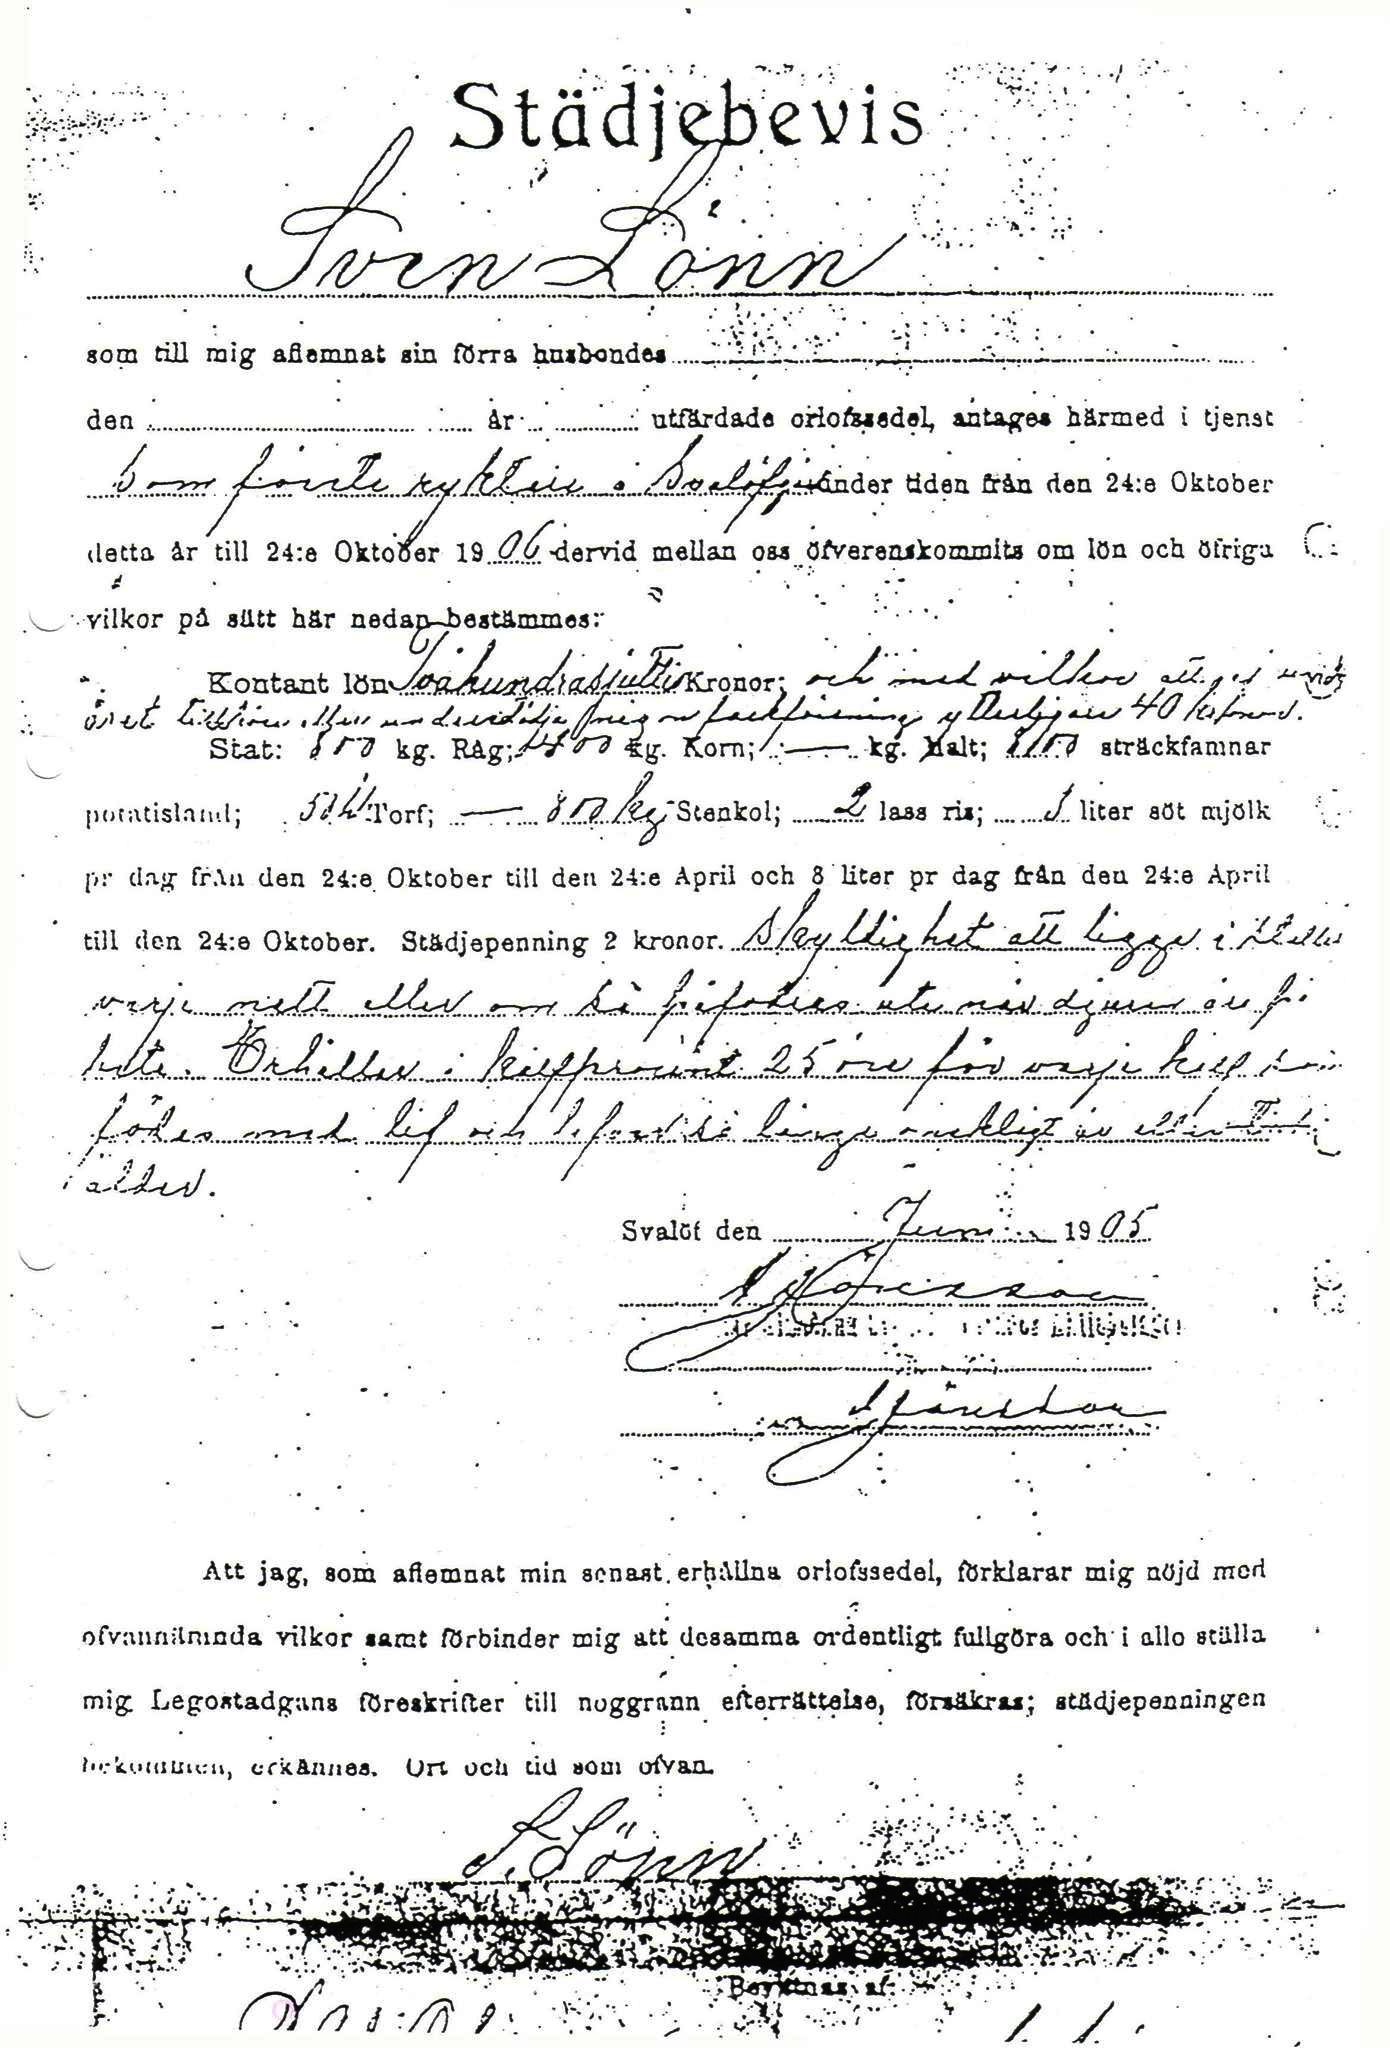 Städjebevis
Sven Lönn
som till mig aflemnat sin förra husbondes
den år utfärdade orlofssedel, antages härmed i tjenst
som förste ryktare i Svalöf under tiden från den 24:e Oktober
detta år till 24:e Oktober 1906 dervid mellan oss öfverenskommits om lön och öfriga
vilkor på sätt här nedan bestämmes:
Kontant lön Tvåhundrasjuttio Kronor; och med vilkor att ej under
året ytterligare 40 kronor.
Stat: 800 kg. Råg; 400 kg. Korn; — kg. Malt; sträckfamnar
potatisland; Torf; — 800 kg Stenkol; 2 lass ris; liter söt mjölk
pr dag från den 24:e Oktober till den 24:e April och 3 liter pr dag från den 24:e April
till den 24:e Oktober. Städjepenning 2 kronor. Skyldighet att ligga i stallet
varje natt eller om så ute när djuren äro på
bete. Erhåller i kalfprocent 25 öre för varje kalf som
födes med lif och så länge
ålder.
Svalöf den Juni 1905
Att jag, som aflemnat min senast erhållna orlofssedel, förklarar mig nöjd med
ofvannämnda vilkor samt förbinder mig att desamma ordentligt fullgöra och i allo ställa
mig Legostadgans föreskrifter till noggrann efterrättelse, försäkras; städjepenningen
bekommen, erkännes. Ort och tid som ofvan.
S. Lönn
Bevittnas af: